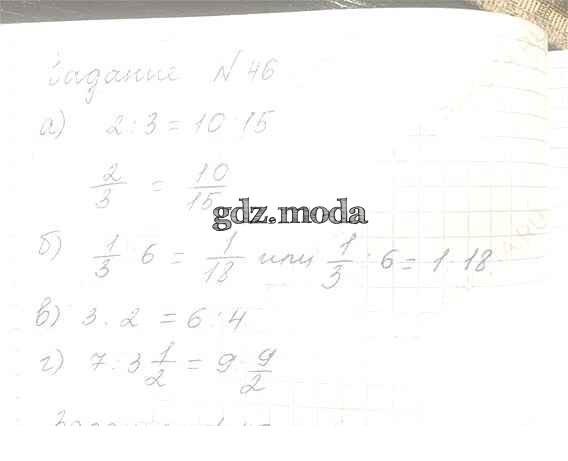 Задание № 46
а) 2 : 3 = 10 : 15
2/3 = 10/15
gdz.moda
б) 1/3 : 6 = 1/18 или 1/3 : 6 = 1 : 18
в) 3 : 2 = 6 : 4
г) 7 : 3 1/2 = 9 : 9/2